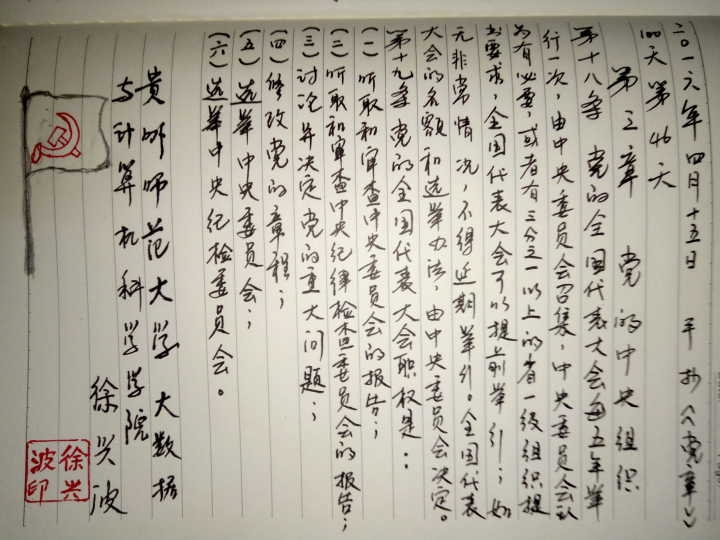 二〇一六年四月十五日 手抄《党章》
100天第46天
第三章 党的中央组织
第十八条 党的全国代表大会每五年举
行一次,由中央委员会召集,中央委员会认
为有必要,或者有三分之一以上的省一级组织提
出要求,全国代表大会可以提前举行;如
无非常情况,不得延期举行。全国代表
大会的名额和选举办法,由中央委员会决定。
第十九条 党的全国代表大会职权是:
(一)听取和审查中央委员会的报告;
(二)听取和审查中央纪律检查委员会的报告;
(三)讨论并决定党的重大问题;
(四)修改党的章程;
(五)选举中央委员会;
(六)选举中央纪检委员会。
贵州师范大学大数据
与计算机科学学院
徐兴波
徐兴
波印